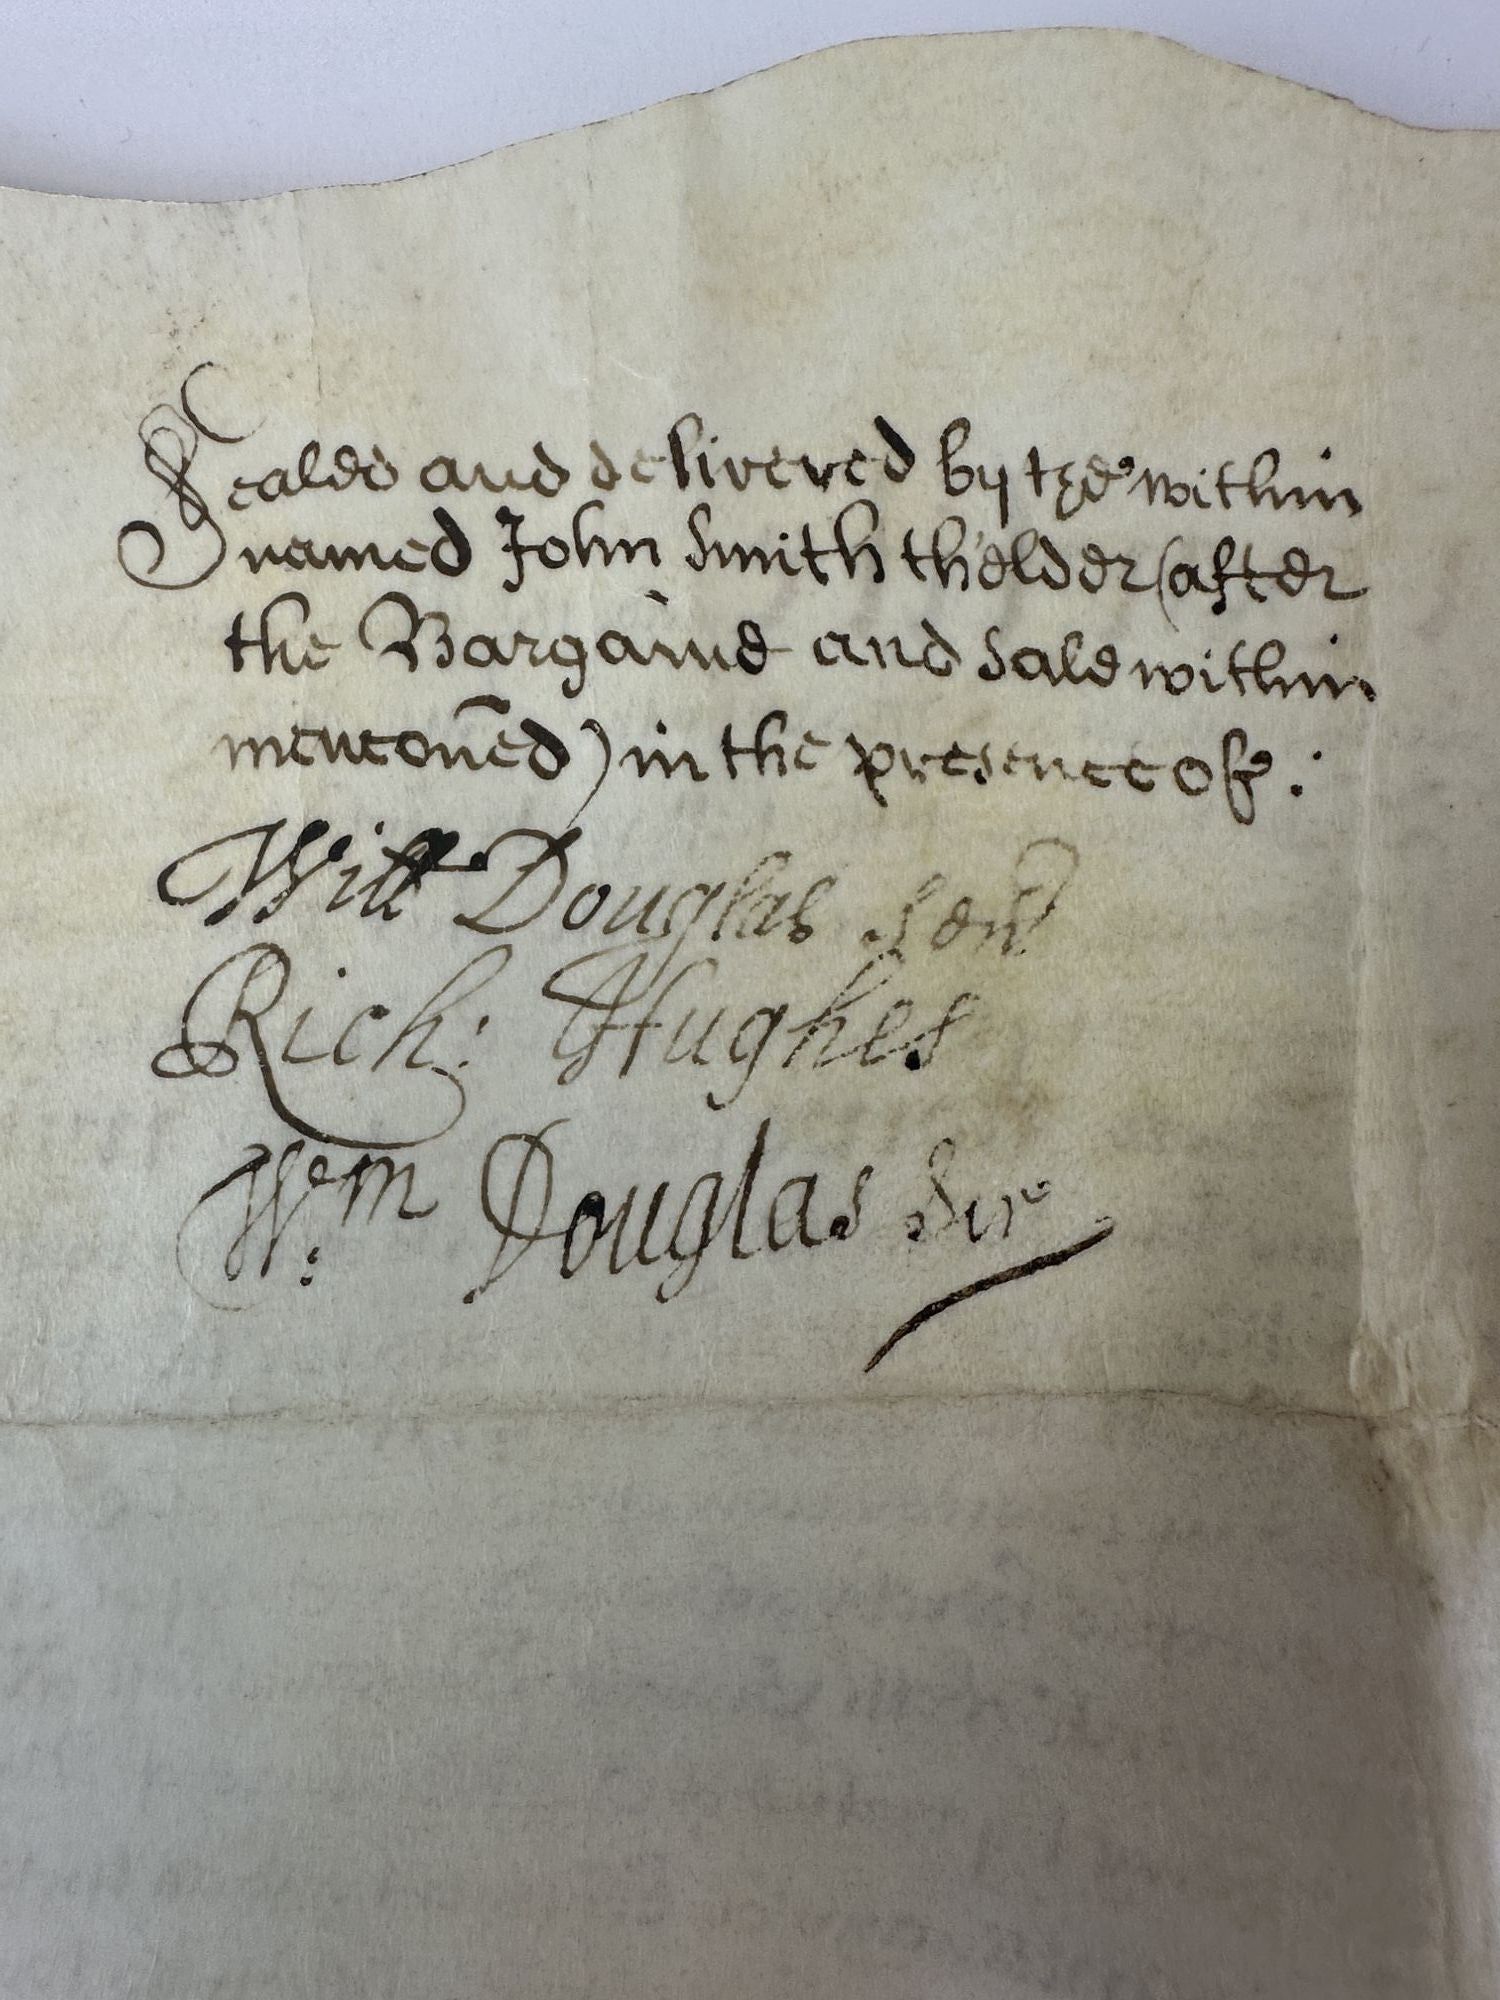 Sealed and delivered by the within
named John Smith th'elder (after
the Bargaine and Sale within
menconed) in the presence of:
Will Douglas Senr
Rich: Hughes
Wm: Douglas Junr